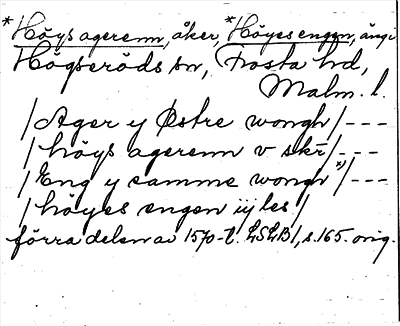 *Höysagerenn, åker, *Höyesengen, äng i
Högseröds sn, Frosta hd,
Malm. l.
/Ager y Østre wongh/---
/höys agerenn v skr̄/---
/Eng y samme wongh/---
/höyes engen iij les/
förra delen av 1570-t. LSLB1, s. 165. orig.